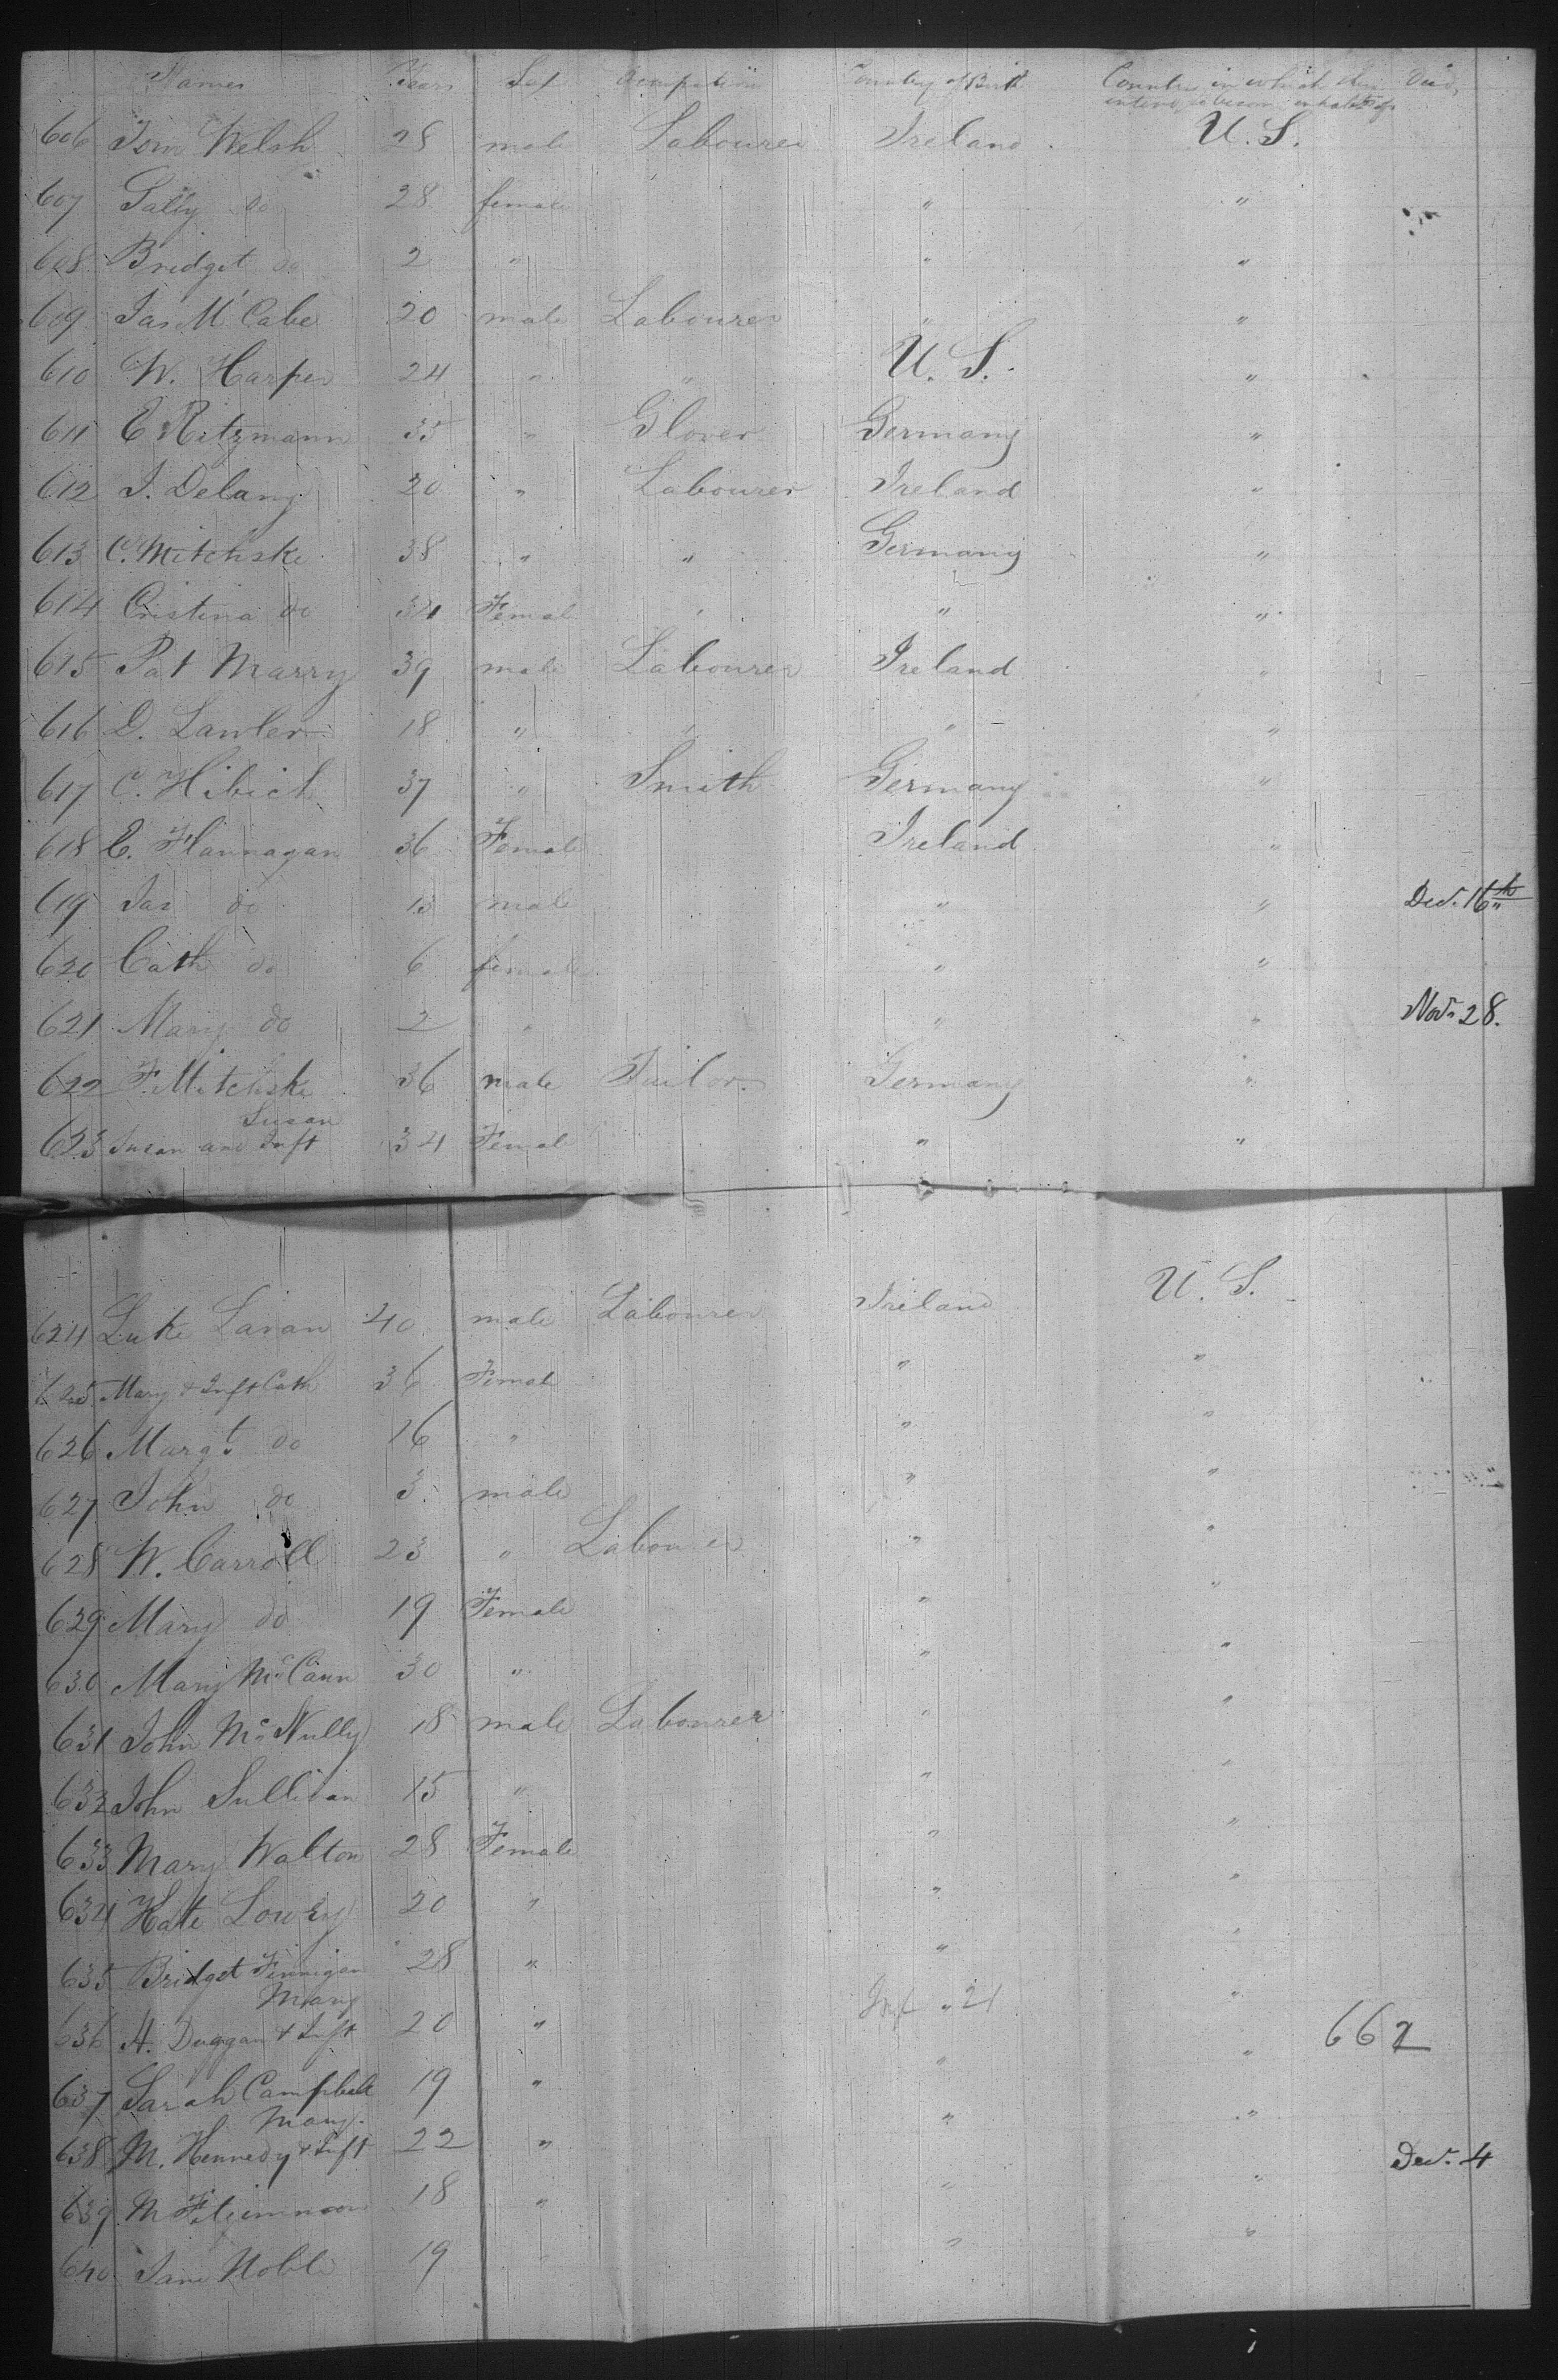 Names Years Sex Occupation Country of Birth Country in which they Died
intend to become inhabitants
606 Tom Welsh 28 male Labourer Ireland U. S.
607 Sally do 28 female " "
608 Bridget do 2 " " "
609 Jas McCabe 20 male Labourer " "
610 W. Harper 24 " " U. S. "
611 E Ritzmann 35 " Glover Germany "
612 J. Delany 20 " Labourer Ireland "
613 C. Mitchske 38 " " Germany "
614 Cristina do 34 Femal " " "
615 Pat Marry 39 male Labourer Ireland "
616 D. Lawler 18 " " " "
617 C. Hibich 37 " Smith Germany "
618 E. Flannagan 36 Female Ireland "
619 Jas do 13 male " " Decr. 16th
620 Cath do 6 female " "
621 Mary do 2 " " " Novr 28.
622 F. Mitchske 36 male Tailor Germany "
Susan
623 Susan and Inft 34 Femal " "
624 Luke Lavan 40 male Labourer Ireland U. S.
625 Mary & Inft Cath 36 Femal " "
626 Margt do 16 " " "
627 John do 3 male " "
628 W. Carroll 23 " Labourer " "
629 Mary do 19 Female " "
630 Mary McCann 30 " " "
631 John McNully 18 male Labourer " "
632 John Sullivan 15 " " "
633 Mary Walton 28 Female " "
634 Kate Lowry 20 " " "
635 Bridget Finnigan 28 " " "
Mary
636 A. Duggan & Inft 20 " Inf " 21 " 662
637 Sarah Campbell 19 " " "
Mary
638 M. Kennedy & Inft 22 " " " Decr. 4
639 M 18 " " "
640 Jane Noble 19 " " "